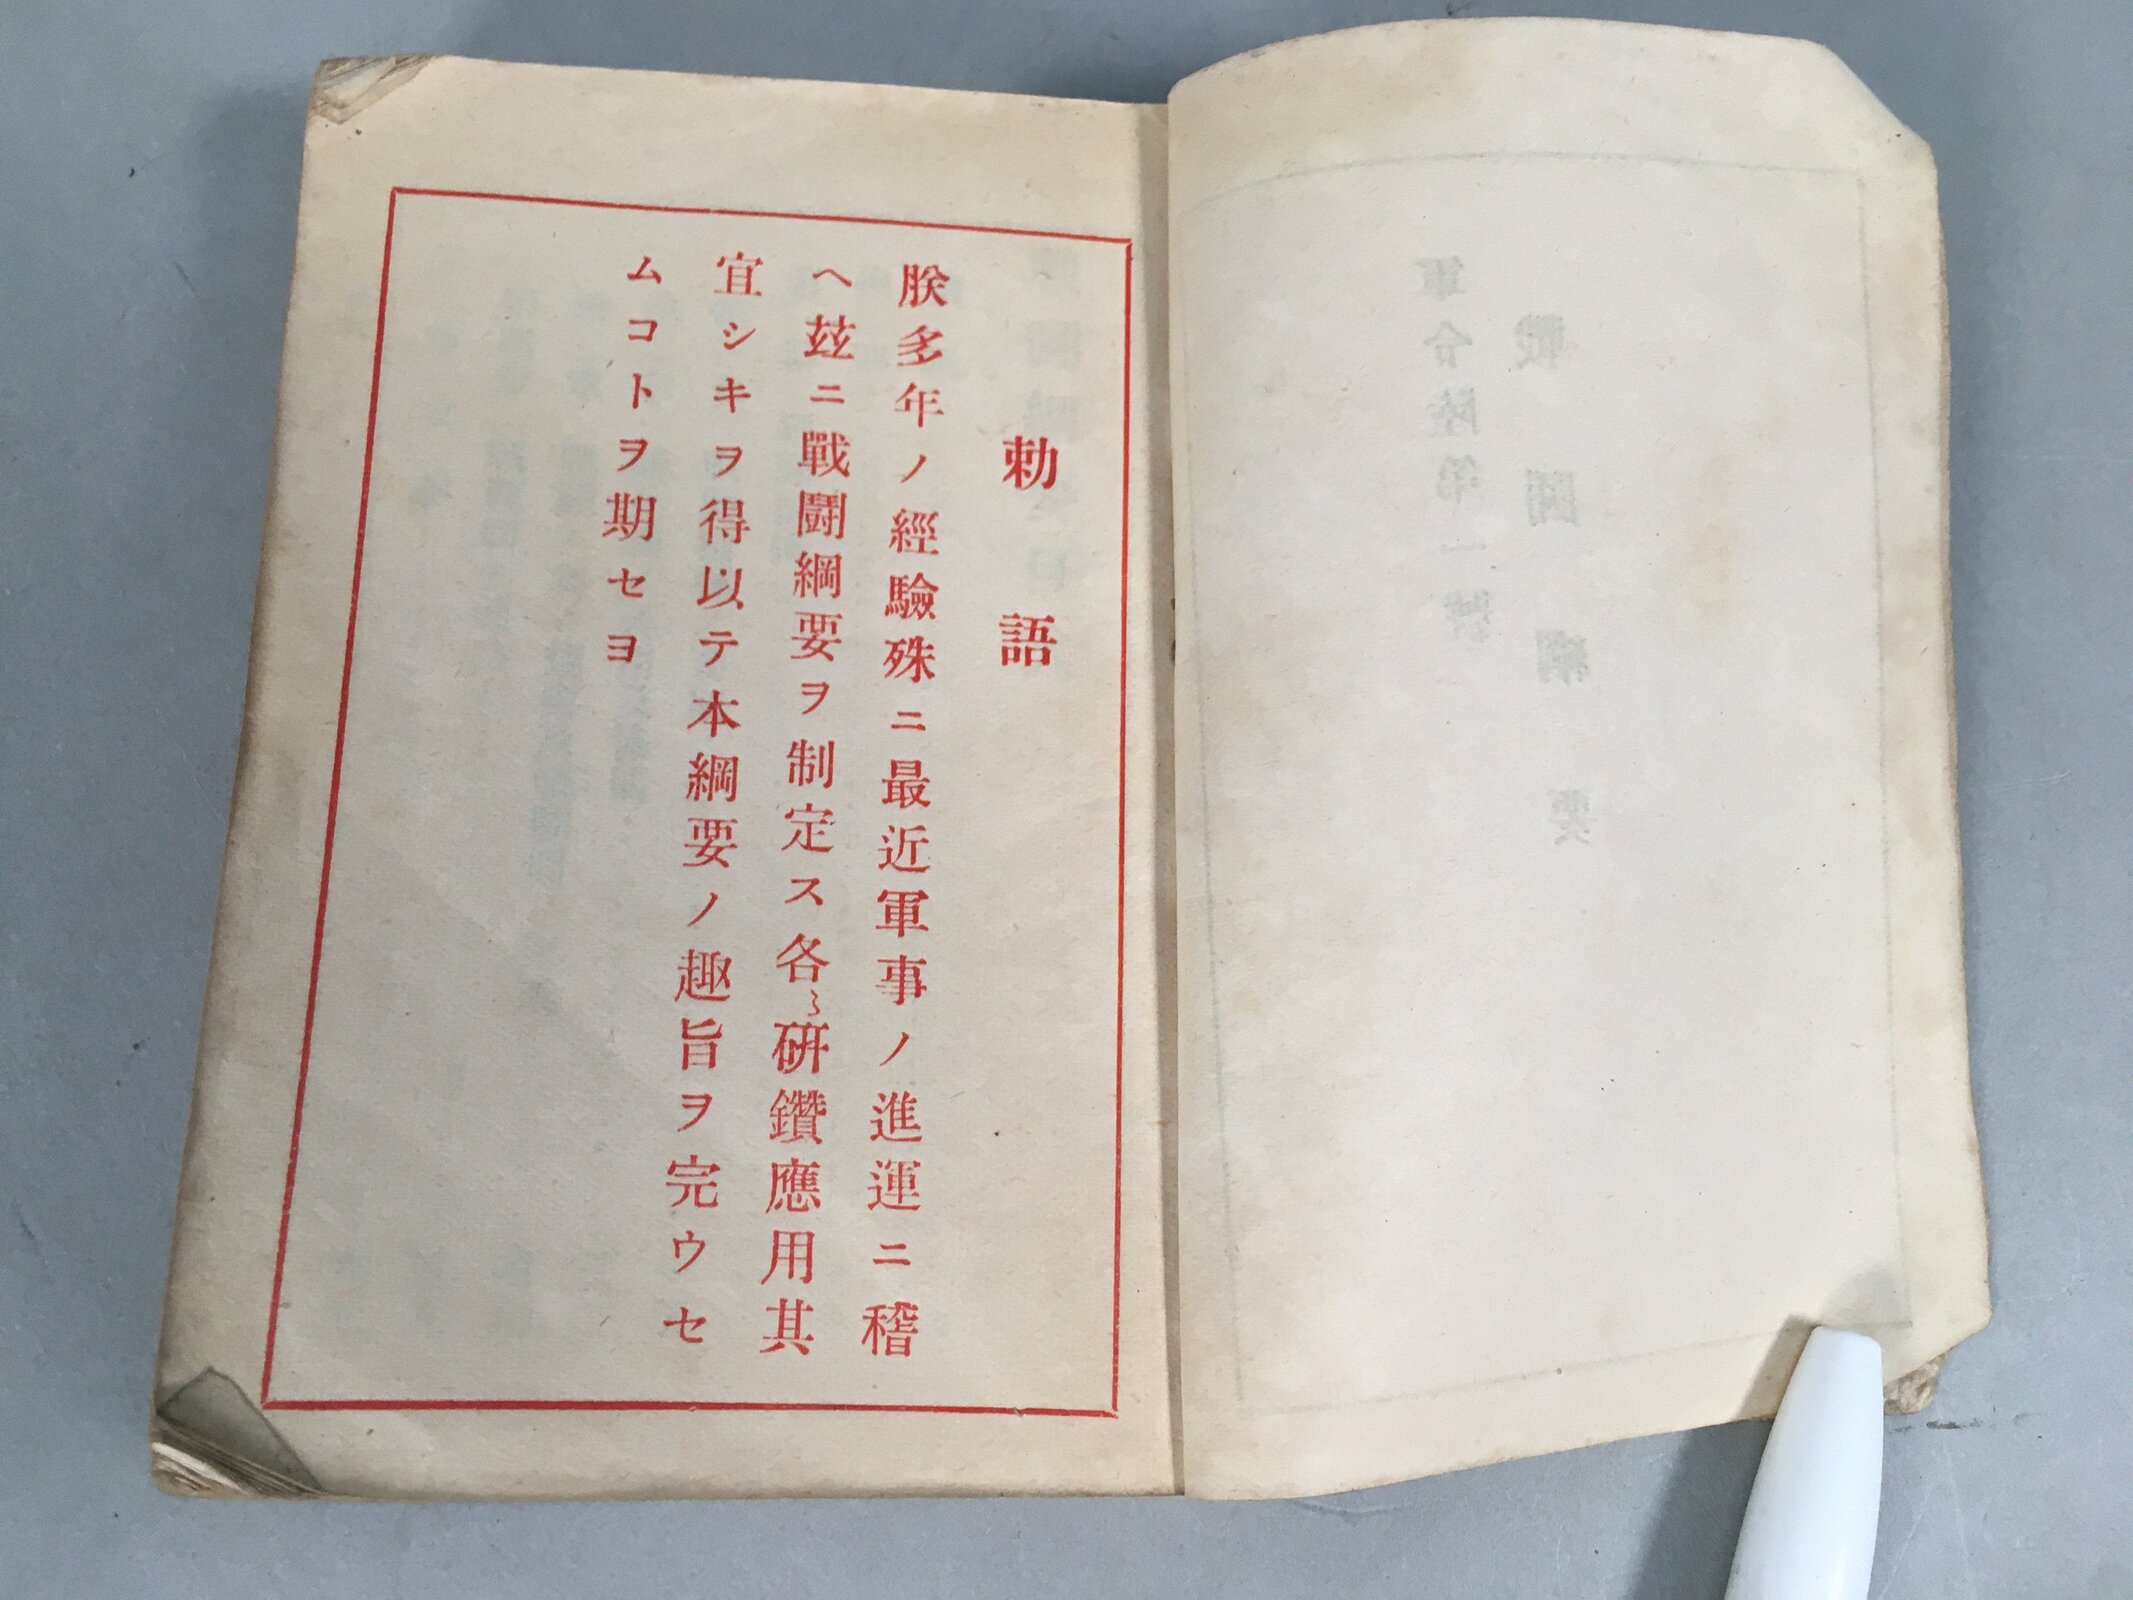 勅語
朕多年ノ經驗殊ニ最近軍事ノ進運ニ稽
ヘ玆ニ戰鬪綱要ヲ制定ス各〻硏鑽應用其
宜シキヲ得以テ本綱要ノ趣旨ヲ完ウセ
ムコトヲ期セヨ
戰鬪綱要
軍令陸第一號